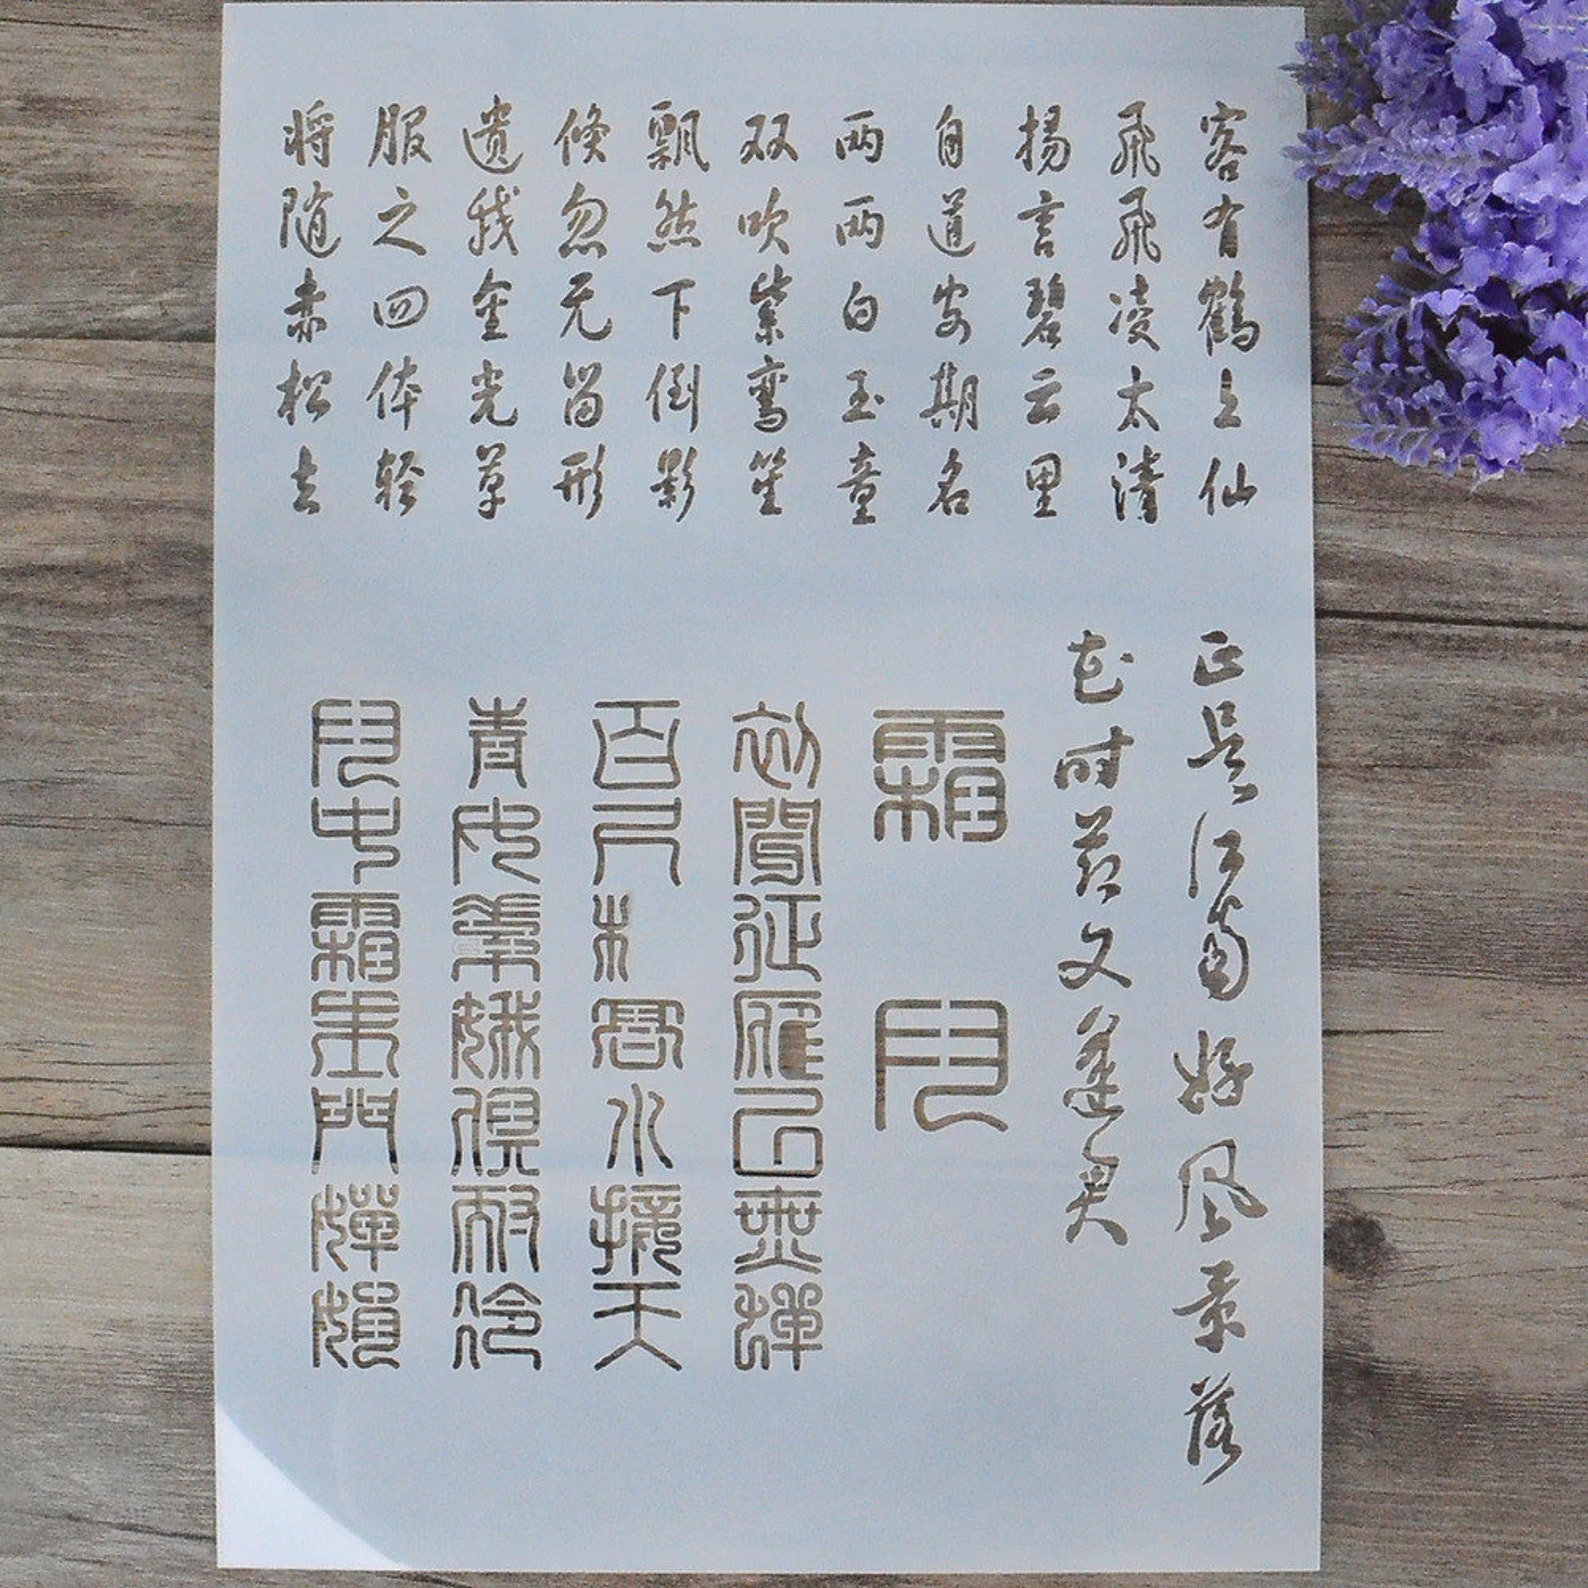 客有鹤上仙
飞飞凌太清
揚言碧云里
自道安期名
两两白玉童
双吹紫鸾笙
飘然下倒影
倏忽无留形
遗我金光草
服之四体轻
将随赤松去
正是江南好风景落
花时节又逢君
霜月
初聞征雁已無蟬
百尺樓高水接天
青女素娥俱耐冷
月中霜里鬥嬋娟